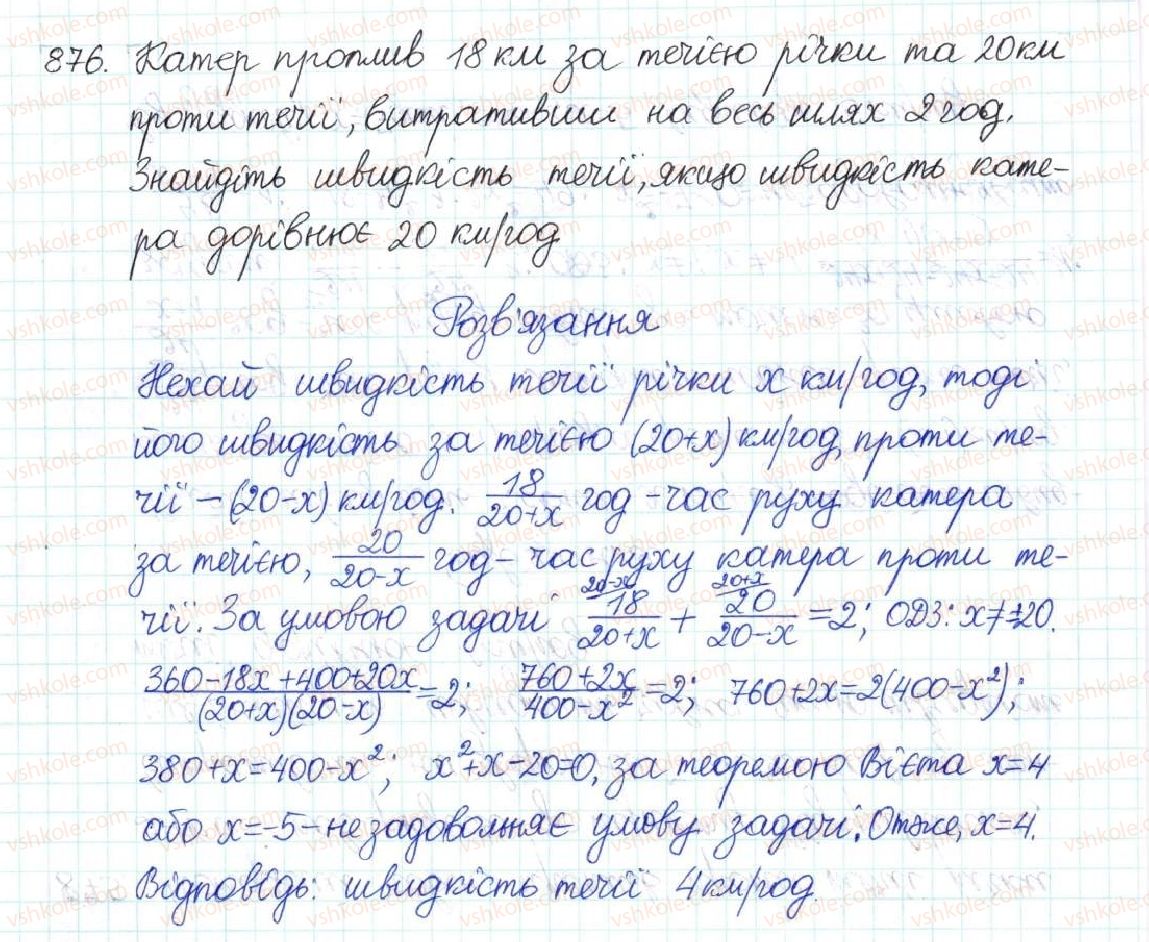 876. Катер проплив 18 км за течією річки та 20 км
проти течії, витративши на весь шлях 2 год.
Знайдіть швидкість течії, якщо швидкість кате-
ра дорівнює 20 км/год
Розв'язання
Нехай швидкість течії річки x км/год, тоді
його швидкість за течією (20+x) км/год, проти те-
чії – (20-x) км/год. 18/(20+x) год - час руху катера
за течією, 20/(20-x) год - час руху катера проти те-
чії. За умовою задачі (20-x) 18/(20+x) + (20+x) 20/(20-x) = 2; ОДЗ: x≠±20.
(360-18x+400+20x)/((20+x)(20-x)) = 2; (760+2x)/(400-x²) = 2; 760+2x=2(400-x²);
380+x=400-x²; x²+x-20=0, за теоремою Вієта x=4
або x=-5 - не задовольняє умову задачі. Отже, x=4.
Відповідь: швидкість течії 4 км/год.